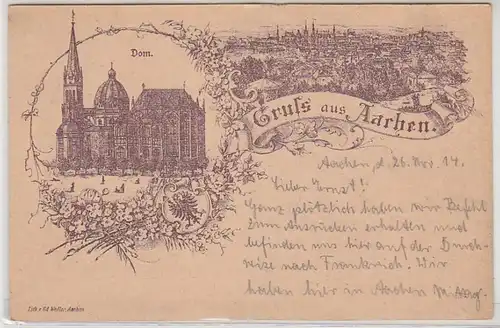 Dom.
Gruss aus Aachen.
Aachen, d. 26. Nov. 14.
Lieber Ernst!
Ganz plötzlich haben wir Befehl
zum Ausrücken erhalten und
befinden uns hier auf der Durch-
reise nach Frankreich. Wir
haben hier in Aachen
Lith. v. Ed. Aachen